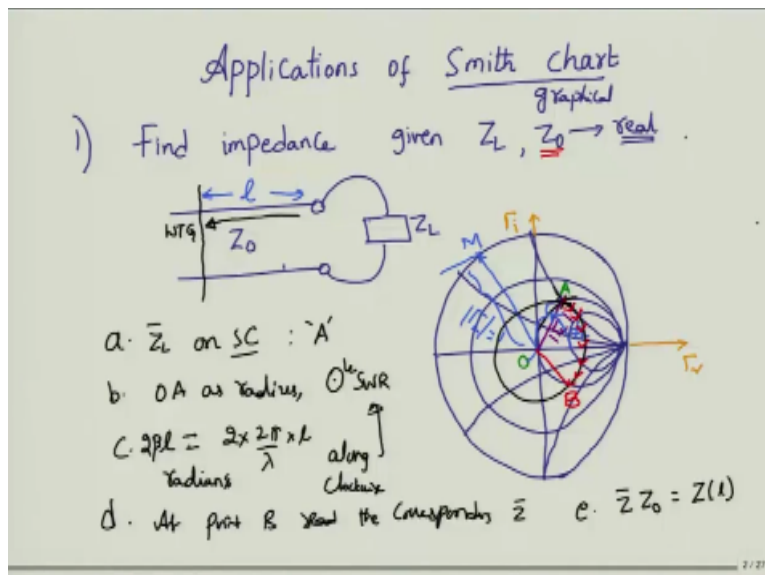 Applications of Smith Chart
graphical
1) Find impedance given Z_L, Z_0 → real.
← l →
WTG
Z_0
Z_L
Γ_i
M
A
|Γ|=
O
B
Γ_r
a. Z̄_L on SC : 'A'
b. OA as radius, ʘle SWR
c. 2βl = 2 × 2π/λ × l along
radians
Clockwise
d. At point B read the corresponding z̄
e. z̄ Z_0 = Z(l)
2/27